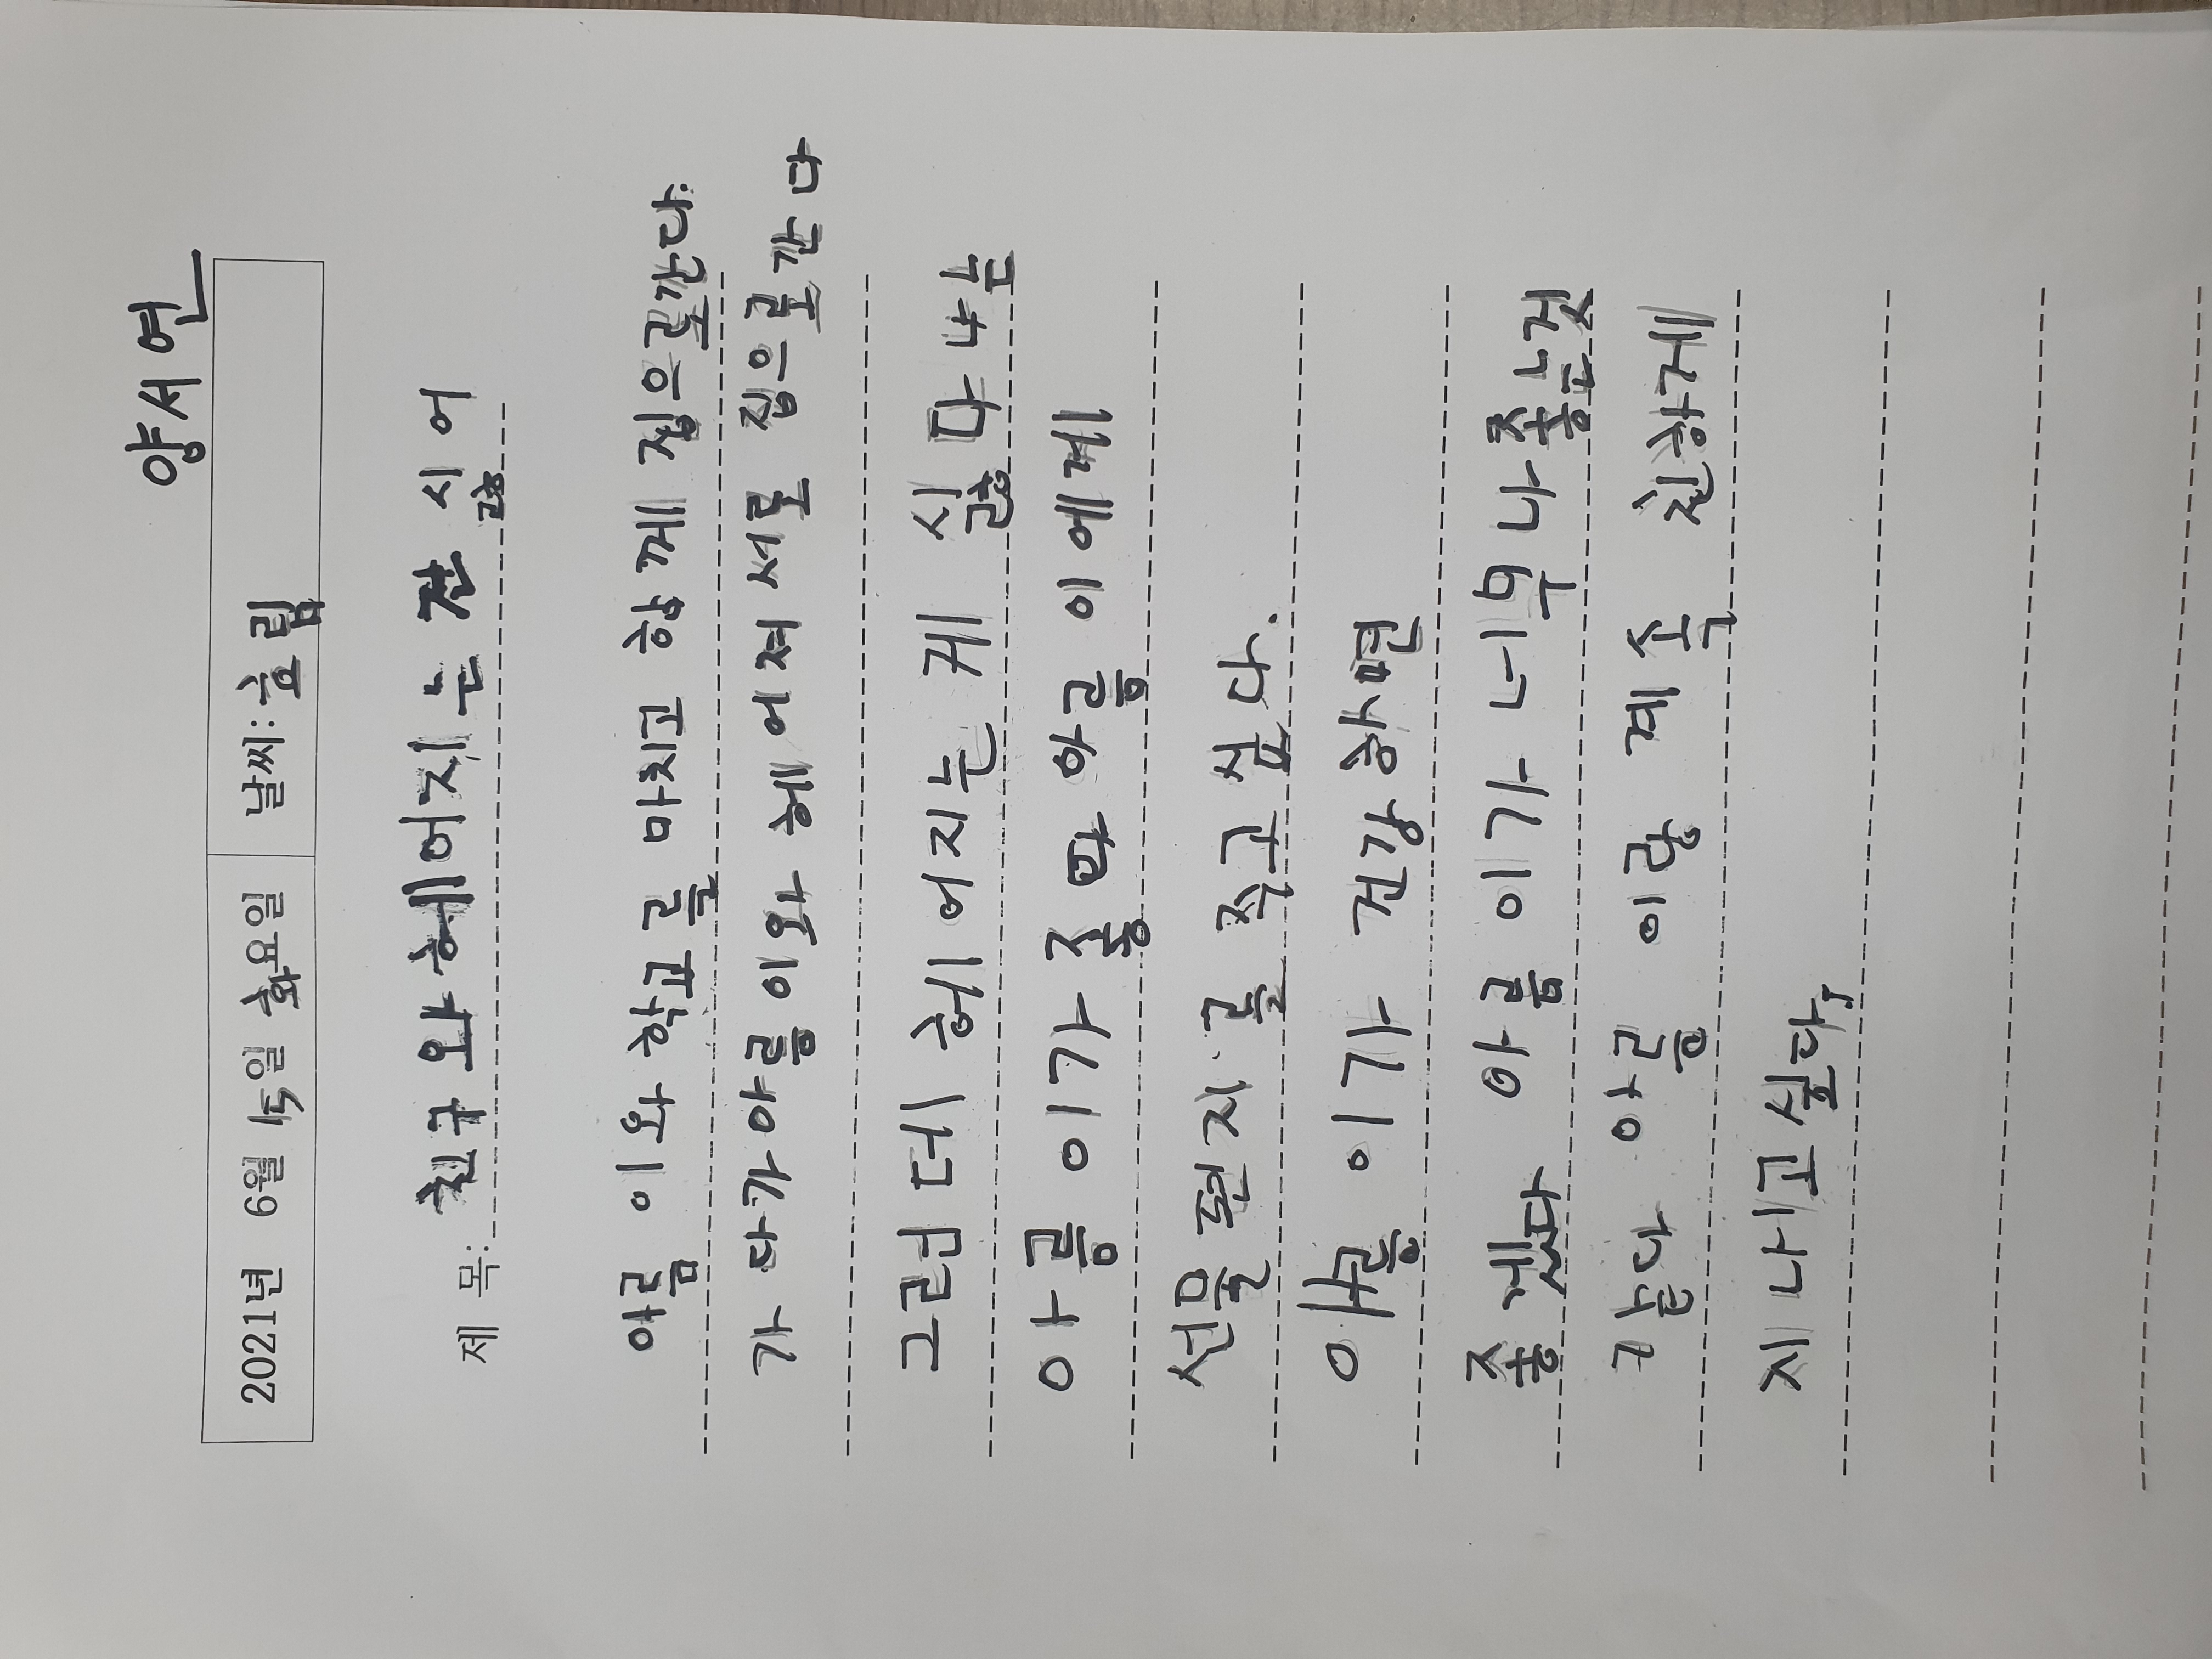 양서연
2021년 6월 15일 화요일 날씨: 효림
제 목: 친구와 헤어지는 잔 싫어
아름이와 학교를 마치고 함께 집으로간다.
가다가 아름이와 헤어져 서로 집으로간다
그런데 헤어지는 게 싫다 나는
아름이가 좋다 아름이에게
선물 편지를 주고 싶다.
아름이가 건강하면
좋겠다 아름이가 너무나 좋는것
같다 아름이랑 계속 친하게
지내고 싶다,